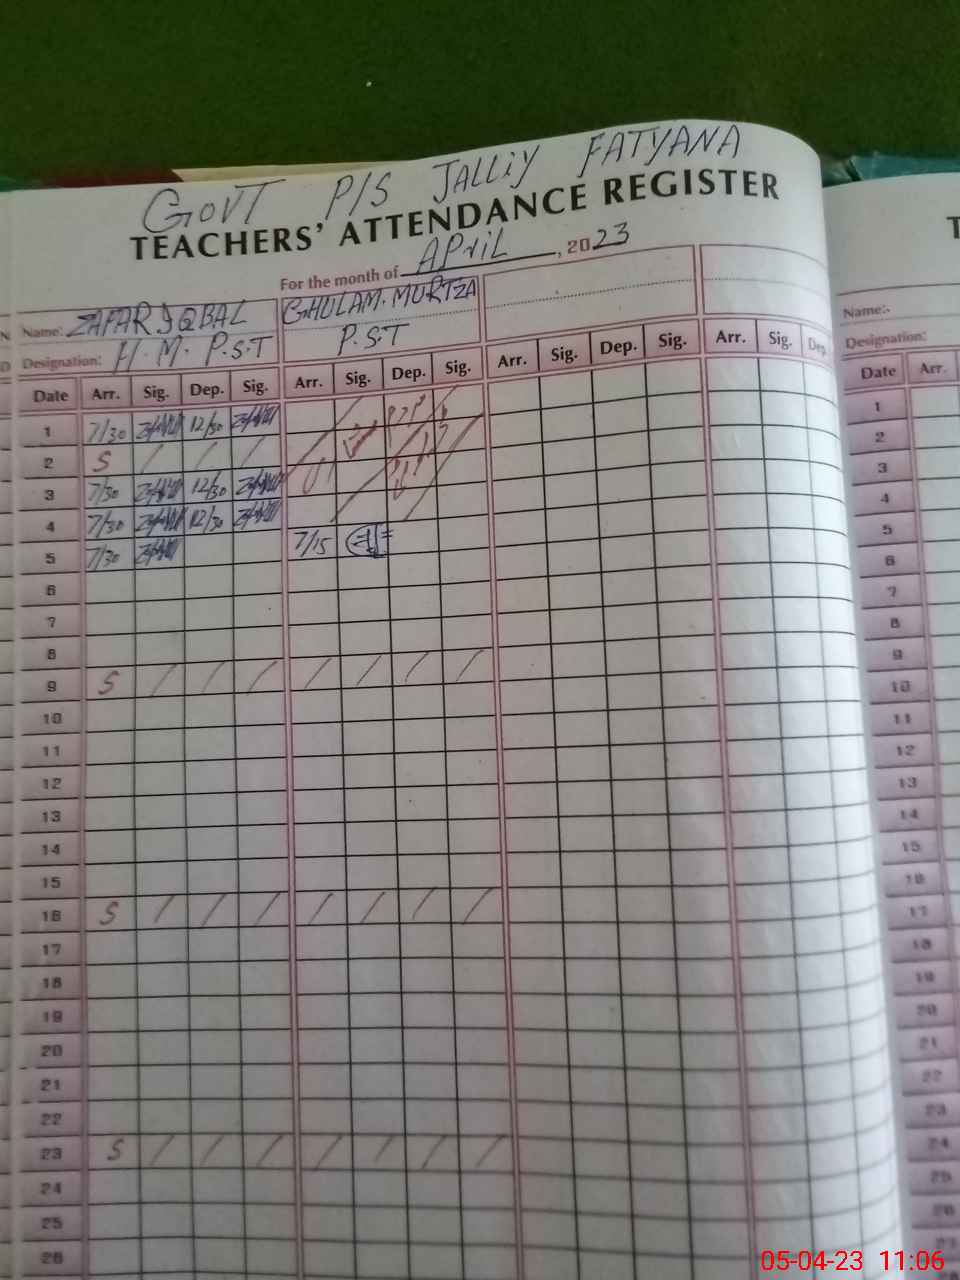 GOVT P/S JALLIY FATYANA
TEACHERS' ATTENDANCE REGISTER
For the month of APRIL, 2023
Name: ZAFAR IQBAL GHULAM MURTZA
Designation: H.M. P.S.T P.S.T
Date Arr. Sig. Dep. Sig. Arr. Sig. Dep. Sig. Arr. Sig. Dep. Sig. Arr. Sig. Dep.
1 7/30 12/30
2 S / / /
3 7/30 12/30
4 7/30 12/30
5 7/30 7/15
6
7
8
9 S / / / / / / /
10
11
12
13
14
15
16 S / / / / / / /
17
18
19
20
21
22
23 S / / / / / / /
24
25
26
Name:-
Designation:
Date Arr.
1
2
3
4
5
6
7
8
9
10
11
12
13
14
15
16
17
18
19
20
21
22
23
24
25
26
27
05-04-23 11:06